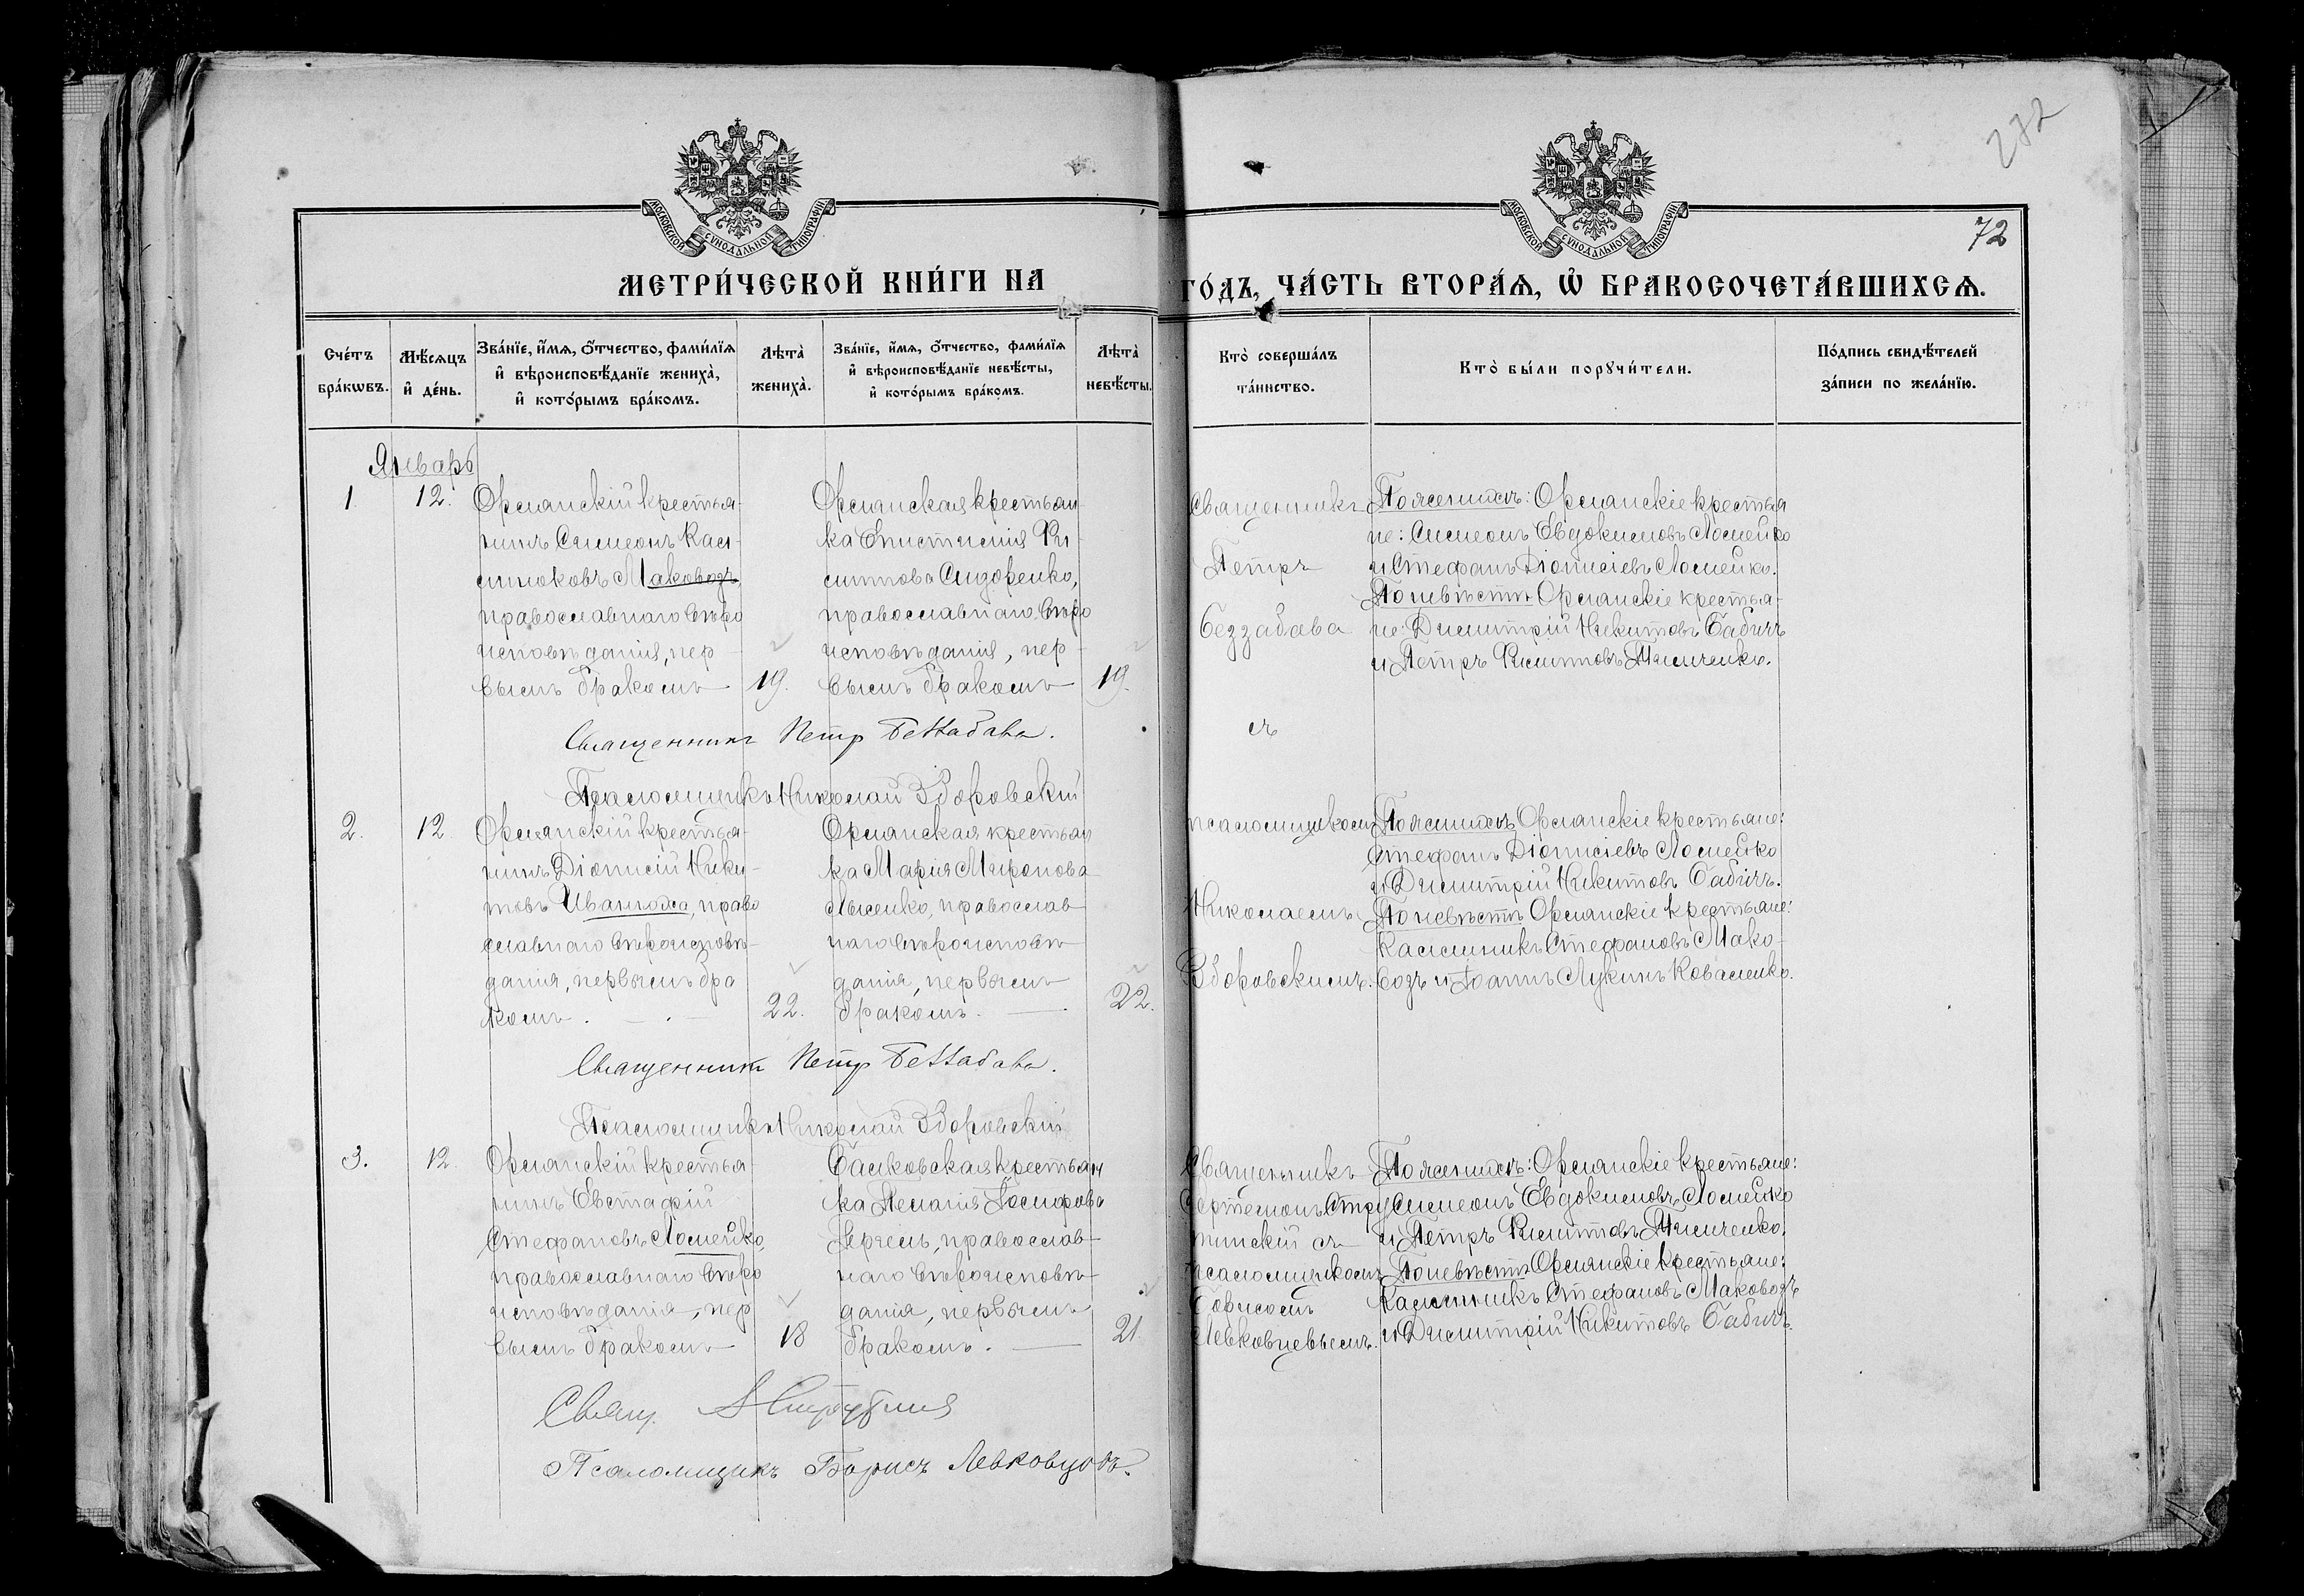 272
72
МОСКОВСКОЙ СѴНОДАЛЬНОЙ ТИПОГРАФІИ
МОСКОВСКОЙ СѴНОДАЛЬНОЙ ТИПОГРАФІИ
МЕТРИ́ЧЕСКОЙ КНИ́ГИ НА
ГО́ДЪ, ЧА́СТЬ ВТОРА́Ѧ, Ѡ БРАКОСОЧЕТА́ВШИХСѦ.
Сче́тъ бра́кѡвъ.
Мѣ́сѧцъ и҆ де́нь.
Зва́нїе, и҆́мѧ, ѻ҆́тчество, фами́лїѧ
и҆ вѣроисповѣ́данїе жениха̀,
и҆ кото́рымъ бра́комъ.
Лѣта̀ жениха̀.
Зва́нїе, и҆́мѧ, ѻ҆́тчество, фами́лїѧ
и҆ вѣроисповѣ́данїе невѣ́сты,
и҆ кото́рымъ бра́комъ.
Лѣта̀ невѣ́сты.
Кто̀ соверша́лъ
та́инство.
Кто̀ бы́ли порꙋчи́тели.
По́дпись свидѣ́телей
за́писи по жела́нїю.
Январь
1.
12.
Орлянскій крестья-
нинъ Симеонъ Кал-
линиковъ Маководъ
православнаго вѣро
исповѣданія, пер-
вымъ бракомъ
19.
Орлянская крестьян
ка
Сидоренко,
православнаго вѣро
исповѣданія, пер-
вымъ бракомъ
19.
Священникъ
Петръ
Беззабава
съ
По женихѣ: Орлянскіе крестья
не: Симеонъ Евдокимовъ Ломейко
и Стефанъ Діонисіевъ Ломейко.
По невѣстѣ Орлянскіе крестья-
не: Димитрій Никитовъ Бабичъ
и Петръ Тимченко.
Священникъ Петр Беззабава.
Псаломщикъ Николай Зборовскій
2.
12
Орлянскій крестья-
нинъ Діонисій Ники-
товъ право
славнаго вѣроисповѣ-
данія, первымъ бра
комъ.
22.
Орлянская крестьян
ка Марія Миронова
Лысенко, православ
наго вѣроисповѣ
данія, первымъ
бракомъ.
22.
псаломщикомъ
Николаемъ
Зборовскимъ.
По женихѣ Орлянскіе крестьяне:
Стефанъ Діонисіевъ Ломейко
и Димитрій Никитовъ Бабичъ.
По невѣстѣ Орлянскіе крестьяне:
Каллиникъ Стефановъ Мако-
водъ и Іоаннъ Лукинъ Коваленко.
Священник Петр Беззабава.
Псаломщикъ Николай Зборовскій
3.
12.
Орлянскій крестья
нинъ Евстафій
Стефановъ Ломейко,
православнаго вѣро
исповѣданія, пер
вымъ бракомъ
18
крестьян
ка Пелагія Іосифова
православ
наго вѣроисповѣ-
данія, первымъ
бракомъ.
21.
Священникъ
съ
псаломщикомъ
Борисомъ
Левковцевымъ.
По женихѣ: Орлянскіе крестьяне:
Симеонъ Евдокимовъ Ломейко
и Петръ Тимченко.
По невѣстѣ Орлянскіе крестьяне:
Каллиникъ Стефановъ Маководъ
и Димитрій Никитовъ Бабичъ.
Свящ.
Псаломщикъ Борисъ Левковцовъ.